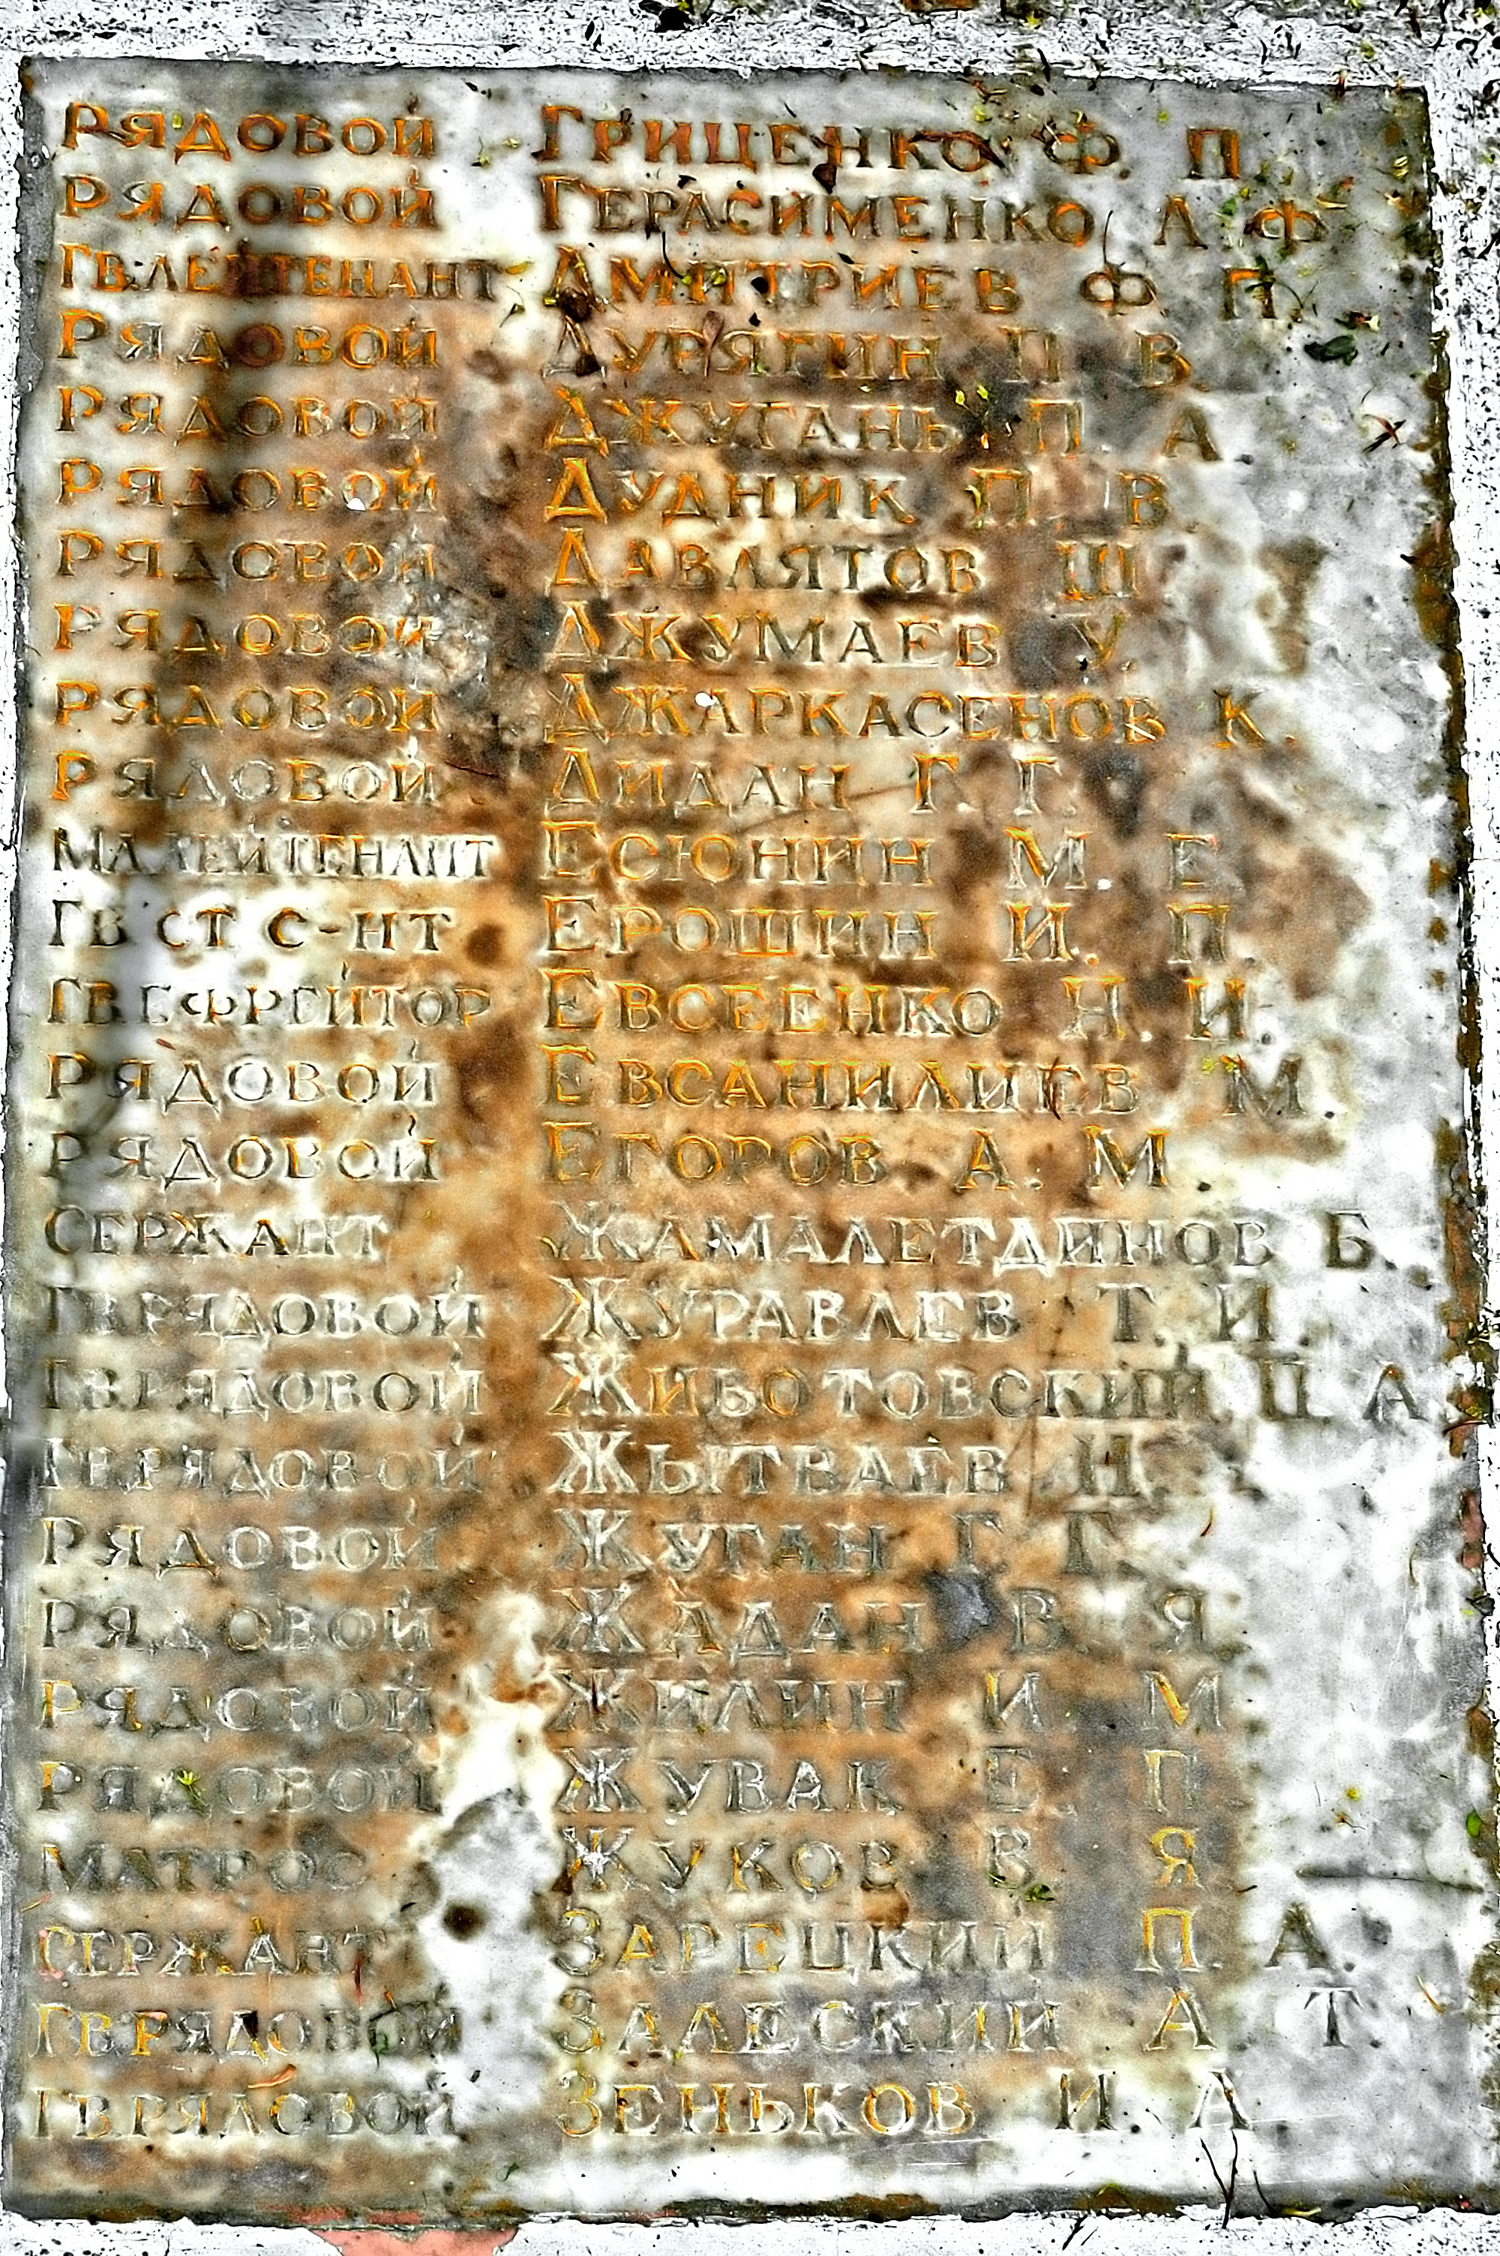 РЯДОВОЙ ГРИЦЕНКО Ф. П.
РЯДОВОЙ ГЕРАСИМЕНКО А. Ф.
ГВ.ЛЕЙТЕНАНТ ДМИТРИЕВ Ф. П.
РЯДОВОЙ ДУРЯГИН П. В.
РЯДОВОЙ ДЖУГАНЬ П. А.
РЯДОВОЙ ДУДНИК П. В.
РЯДОВОЙ ДАВЛЯТОВ Ш.
РЯДОВОЙ ДЖУМАЕВ У.
РЯДОВОЙ ДЖАРКАСЕНОВ К.
РЯДОВОЙ ДИДАН Г. Г.
МЛ.ЛЕЙТЕНАНТ ЕСЮНИН М. Е.
ГВ СТ С-НТ ЕРОШИН И. П.
ГВ.ЕФРЕЙТОР ЕВСЕЕНКО Н. И.
РЯДОВОЙ ЕВСАНИЛИЕВ М.
РЯДОВОЙ ЕГОРОВ А. М.
СЕРЖАНТ ЖАМАЛЕТДИНОВ Б.
ГВ.РЯДОВОЙ ЖУРАВЛЕВ Т. И.
ГВ.РЯДОВОЙ ЖИВОТОВСКИЙ П. А.
ГВ.РЯДОВОЙ ЖЫТВАЕВ Н.
РЯДОВОЙ ЖУГАН Г. Г.
РЯДОВОЙ ЖАДАН В. Я.
РЯДОВОЙ ЖИЛИН И. М.
РЯДОВОЙ ЖУВАК Е. П.
МАТРОС ЖУКОВ В. Я.
СЕРЖАНТ ЗАРЕЦКИЙ П. А.
ГВ.РЯДОВОЙ ЗАЛЕСКИЙ А. Т.
ГВ.РЯДОВОЙ ЗЕНЬКОВ И. А.